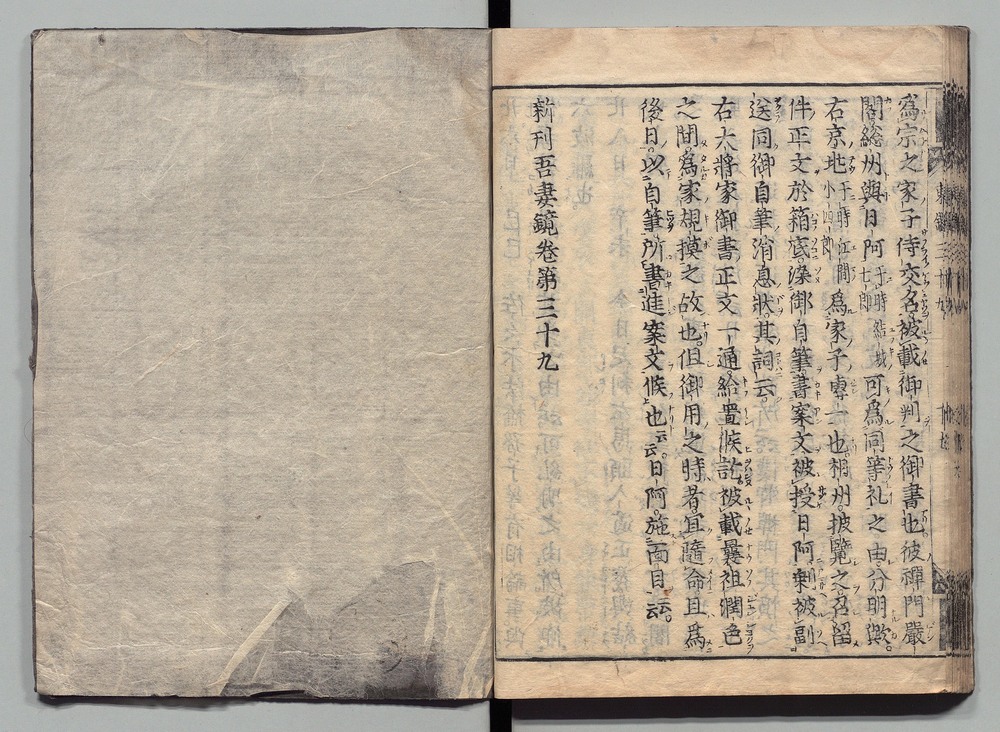 為宗之家子侍交名被載御判之御書也彼禪門嚴
閤総州與日阿于時結城七郎可為同等礼之由分明歟
右京兆于時江間小四郎為家子專一也相州披覧之召留
件正文於箱底染御自筆書案文被授日阿剰被副
送同御自筆消息状其詞云
右大將家御書正文一通給置候訖被載曩祖潤色
之間為家規摸之故也但御用之時者宜隨命且為
後日以自筆所書進案文候也云云日阿施面目云云
新刊吾妻鏡卷第三十九
東鑑三十九